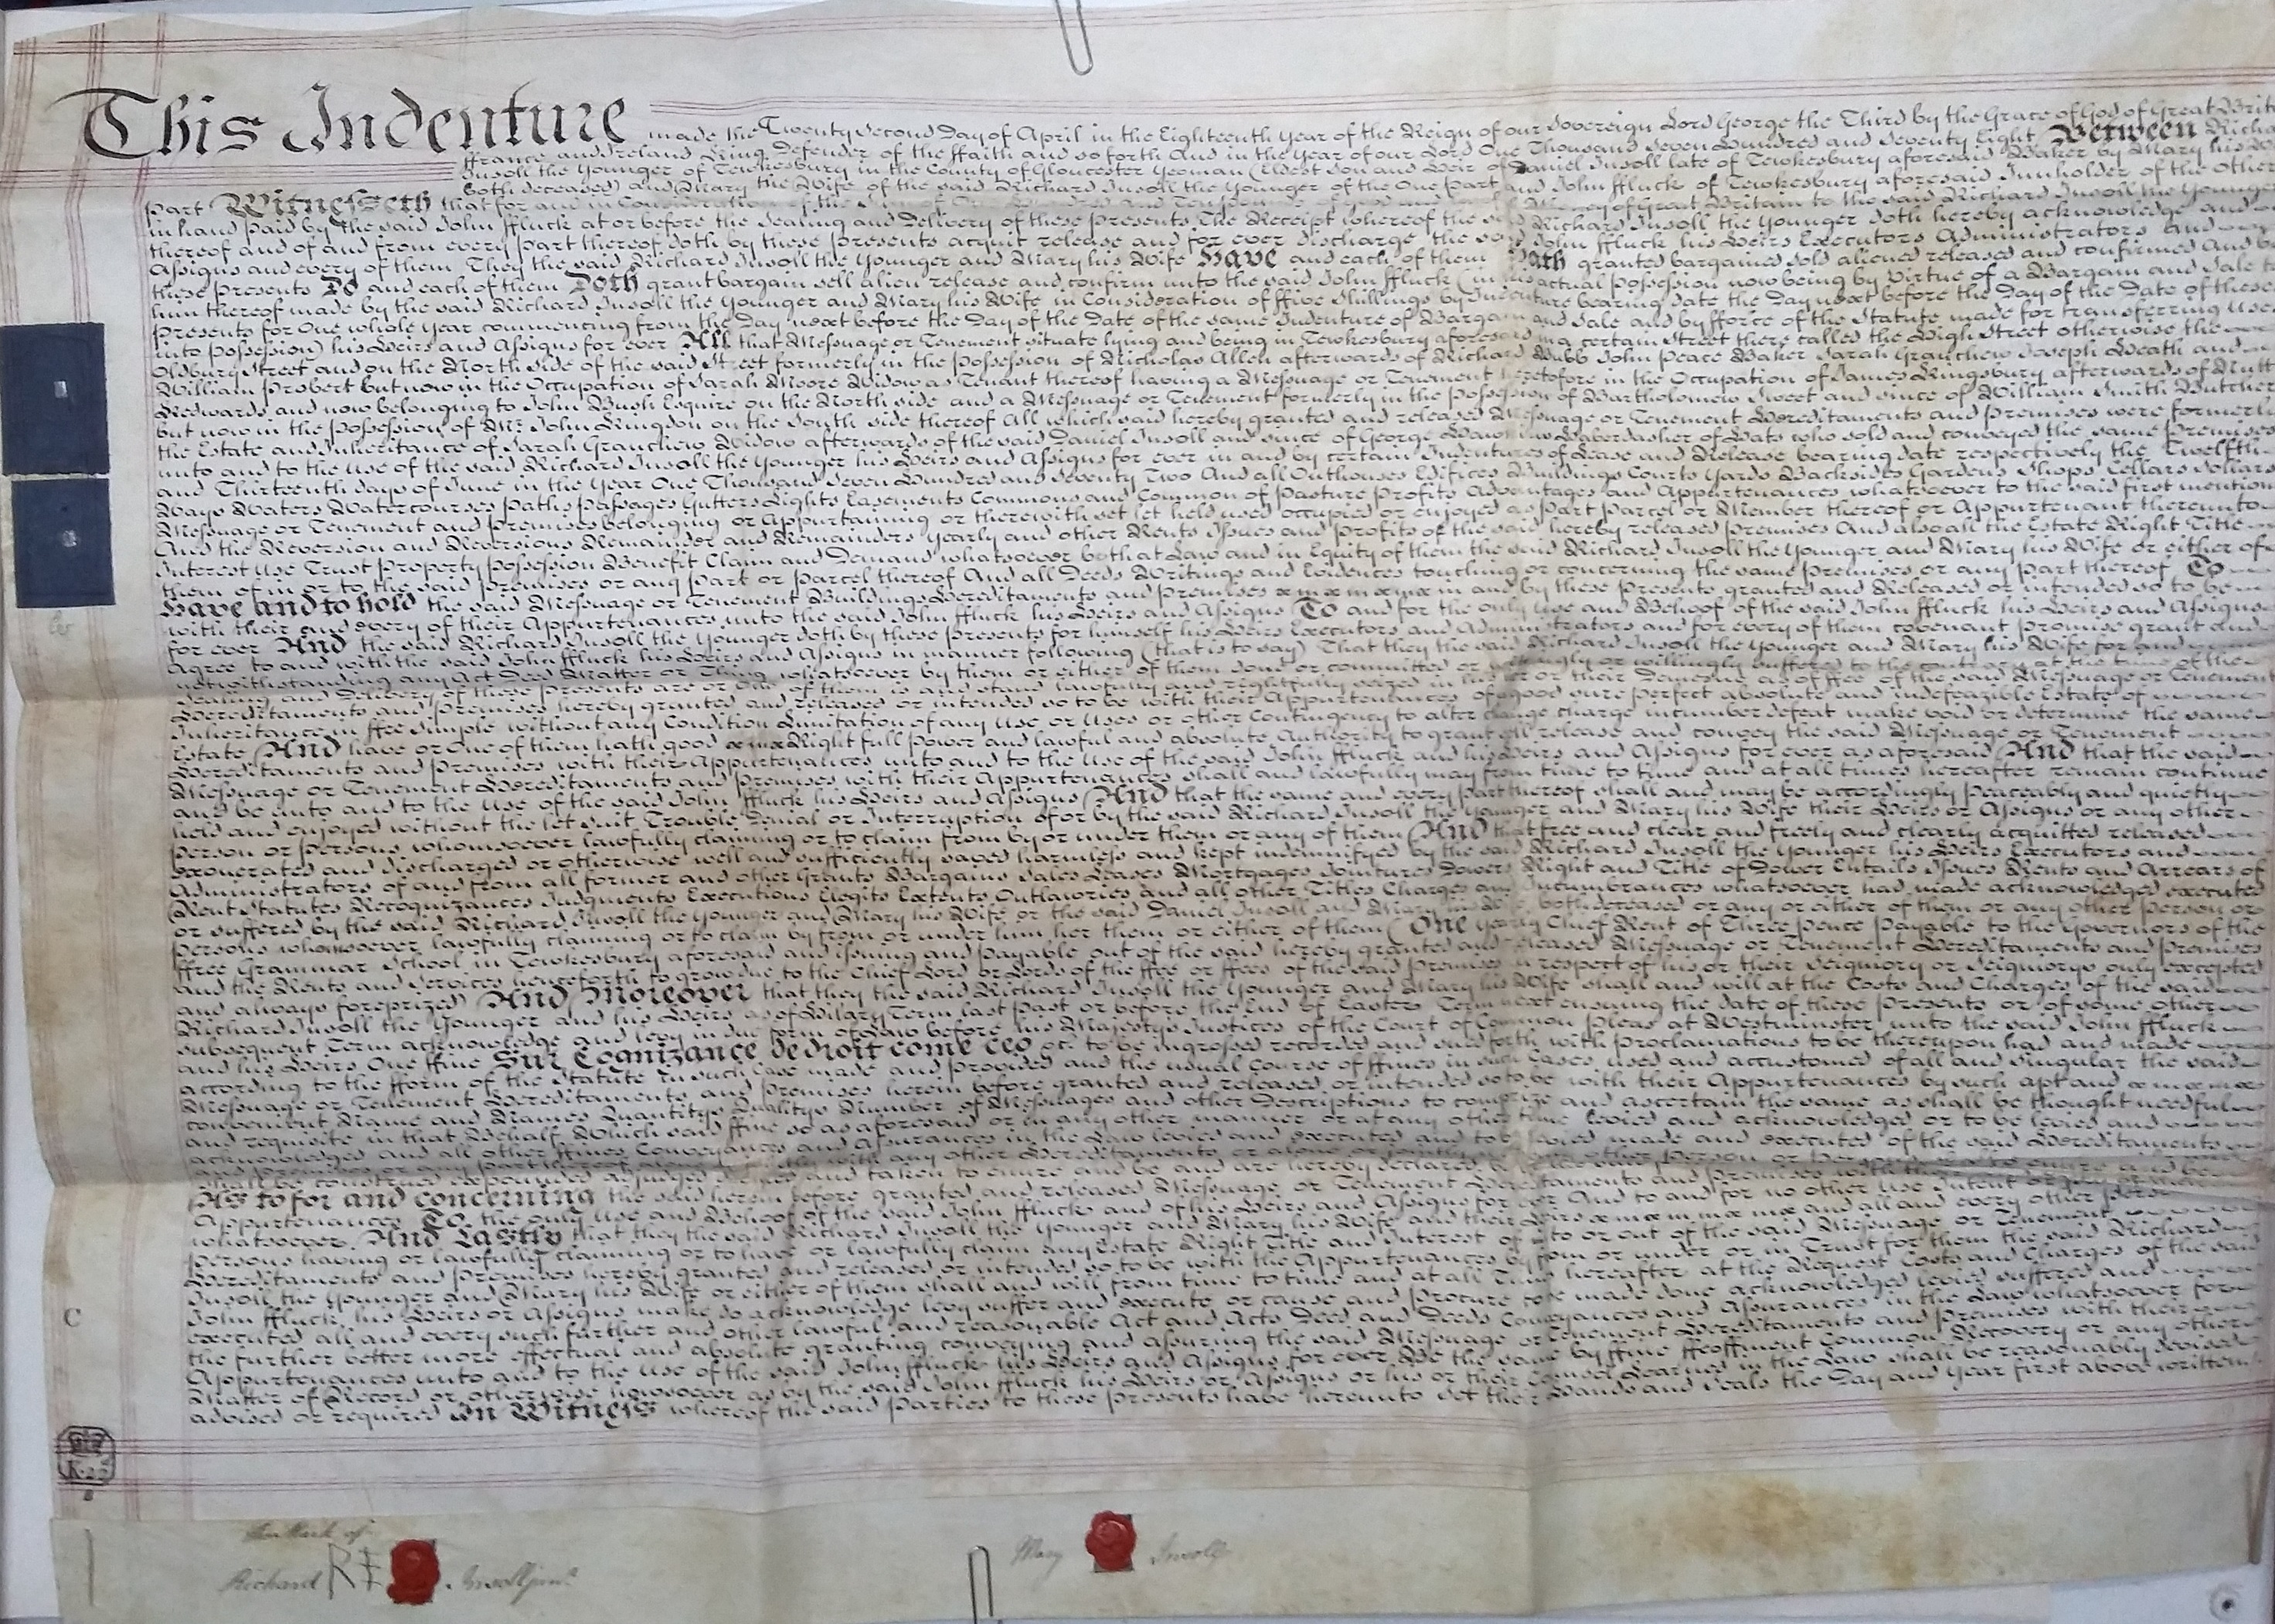 This Indenture made the Twenty Second Day of April in the Eighteenth Year of the Reign of our Sovereign Lord George the Third by the Grace of God of Great Brit
ffrance and Ireland King Defender of the ffaith and so forth And in the Year of our Lord One Thousand Seven Hundred and Seventy Eight Between Richa
Insoll the Younger of Tewkesbury in the County of Gloucester Yeoman (Eldest Son and Heir of Daniel Insoll late of Tewkesbury aforesaid Baker by Mary his
both deceased) and Mary the Wife of the said Richard Insoll the Younger of the One Part and John ffluck of Tewkesbury aforesaid Innholder of the Other
Part Witnesseth that for and in Consideration of the Sum of One Hundred and Ten of Great Britain to the said Richard Insoll the Younger
in hand paid by the said John ffluck at or before the Sealing and Delivery of these Presents The Receipt whereof the said Richard Insoll the Younger doth hereby acknowledge and
thereof and of and from every part thereof doth by these presents acquit release and for ever discharge the said John ffluck his Heirs Executors Administrators and
Assigns and every of them They the said Richard Insoll the Younger and Mary his Wife Have and each of them Hath granted bargained sold aliened released and confirmed And b
these Presents Do and each of them Doth grant bargain sell alien release and confirm unto the said John ffluck (in his actual Possession now being by Virtue of a Bargain and Sale to
him thereof made by the said Richard Insoll the Younger and Mary his Wife in Consideration of ffive Shillings by Indenture bearing date the day next before the Day of the Date of these
Presents for One whole Year commencing from the Day next before the Day of the Date of the same Indenture of Bargain and Sale and by fforce of the Statute made for transferring Uses
into Possession) his Heirs and Assigns for ever All that Messuage or Tenement situate lying and being in Tewkesbury aforesaid in a certain Street there called the High Street otherwise the
Oldbury Street and on the North Side of the said Street formerly in the Possession of Nicholas Allen afterwards of Richard Bubb John Peace Baker Sarah Granchew Joseph Heath and
William Probert but now in the Occupation of Sarah Moore Widow as Tenant thereof having a Messuage or Tenement heretofore in the Occupation of James Kingsbury afterwards of Nutt
Kedwards and now belonging to John Bush Esquire on the North side and a Messuage or Tenement formerly in the Possession of Bartholomew Sweet and since of William Smith Butcher
but now in the Possession of Mr. John Kingdon on the South side thereof All which said hereby granted and released Messuage or Tenement Hereditaments and Premises were formerly
the Estate and Inheritance of Sarah Granchew Widow afterwards of the said Daniel Insoll and since of George Haberdasher of Hats who sold and conveyed the same Premises
unto and to the Use of the said Richard Insoll the Younger his Heirs and Assigns for ever in and by certain Indentures of Lease and Release bearing date respectively the Twelfth
and Thirteenth days of June in the Year One Thousand Seven Hundred and Seventy Two And all Outhouses Edifices Buildings Courts Yards Backsides Gardens Shops Cellars Sollars
Ways Waters Watercourses Paths Passages Gutters Lights Easements Commons and Common of Pasture Profits Advantages and Appurtenances whatsoever to the said first mention
Messuage or Tenement and Premises belonging or Appurtaining or therewith set let held used occupied or enjoyed as Part Parcel or Member thereof or Appurtenant thereunto
And the Reversion and Reversions Remainder and Remainders Yearly and other Rents Issues and Profits of the said hereby released Premises And also all the Estate Right Title
Interest Use Trust Property Possession Benefit Claim and Demand whatsoever both at Law and in Equity of them the said Richard Insoll the Younger and Mary his Wife or either of
them of in or to the said Premises or any Part or Parcel thereof And all Deeds Writings and Evidences touching or concerning the same Premises or any Part thereof To
Have and to hold the said Messuage or Tenement Buildings Hereditaments and Premises in and by these Presents granted and Released or intended so to be
with their and every of their Appurtenances unto the said John ffluck his Heirs and Assigns To and for the only Use and Behoof of the said John ffluck his Heirs and Assigns
for ever And the said Richard Insoll the Younger doth by these Presents for himself his Heirs Executors and Administrators and for every of them covenant promise grant and
Agree to and with the said John ffluck his Heirs and Assigns in manner following (that is to say) That they the said Richard Insoll the Younger and Mary his Wife for and
notwithstanding any Act Deed Matter or Thing whatsoever by them or either of them done or committed or wittingly or willingly suffered to the contrary at the time of the
Sealing and Delivery of these Presents are or One of them is and stand lawfully and rightfully seized in his her or their Demesne as of ffee of the said Messuage or Tenement
Hereditaments and Premises hereby granted and released or intended so to be with their Appurtenances of a good sure perfect absolute and indefeazible Estate of
Inheritance in ffee Simple without any Condition Limitation of any Use or Uses or other Contingency to alter change charge incumber defeat make void or determine the same
Estate And have or One of them hath good Right full Power and lawful and absolute Authority to grant release and convey the said Messuage or Tenement
Hereditaments and Premises with their Appurtenances unto and to the Use of the said John ffluck and his Heirs and Assigns for ever as aforesaid And that the said
Messuage or Tenement Hereditaments and Premises with their Appurtenances shall and lawfully may from time to time and at all times hereafter remain continue
and be unto and to the Use of the said John ffluck his Heirs and Assigns And that the same and every Part thereof shall and may be accordingly peaceably and quietly
held and enjoyed without the let suit Trouble Denial or Interruption of or by the said Richard Insoll the Younger and Mary his Wife their Heirs or Assigns or any other
person or persons whomsoever lawfully claiming or to claim from by or under them or any of them And that free and clear and freely and clearly acquitted released
exonerated and discharged or otherwise well and sufficiently saved harmless and kept indemnifyed by the said Richard Insoll the Younger his Heirs Executors and
Administrators of and from all former and other Grants Bargains Sales Leases Mortgages Jointures Dowers Right and Title of Dower Entails Issues Rents and Arrears of
Rent Statutes Recognizances Judgments Executions Elegits Extents Outlawries and all other Titles Charges and Incumbrances whatsoever had made acknowledged executed
or suffered by the said Richard Insoll the Younger and Mary his Wife or the said Daniel Insoll and Mary his Wife both deceased or any or either of them or any other Person or
Persons whomsoever lawfully claiming or to claim by from or under him her them or either of them (One yearly Chief Rent of Three Pence Payable to the Governors of the
ffree Grammar School in Tewkesbury aforesaid and issuing and payable out of the said hereby granted and released Messuage or Tenement Hereditaments and Premises
and the Rents and Services henceforth to grow due to the Chief Lord or Lords of the ffee or ffees of the said Premises in respect of his or their Seigniory or Seigniorys only excepted
and always foreprized) And Moreover that they the said Richard Insoll the Younger and Mary his Wife shall and will at the Costs and Charges of the said
Richard Insoll the Younger and his Heirs as of Hilary Term last Past or before the End of Easter Term next ensuing the date of these Presents or of some other
subsequent Term acknowledge and levy in due form of Law before his Majestys Justices of the Court of Common Pleas at Westminster unto the said John ffluck
and his Heirs One ffine Sur Cognizance de droit come ceo &c. to be ingrossed recorded and sued forth with Proclamations to be thereupon had and made
according to the fform of the Statute in such Case made and provided and the usual Course of ffines in such Cases used and accustomed of all and singular the said
Messuage or Tenement Hereditaments and Premises herein before granted and released or intended so to be with their Appurtenances by such apt and
convenient Name and Names Quantitys Qualitys Number of Messuages and other Descriptions to comprize and ascertain the same as shall be thought needful
and requisite in that Behalf Which said ffine so as aforesaid or in any other manner or at any other time levied and acknowledged or to be levied and
acknowledged and all other ffines Conveyances and Assurances in the Law levied and executed and to be levied made and executed of the said Hereditaments
and Premises or any Part thereof with any other Hereditaments or alone or jointly other Person or Persons shall be enure and be
shall be construed expounded adjudged and taken to enure and be and are hereby declared
As to for and concerning the said herein before granted and released Messuage or Tenement Hereditaments and Premises with their
Appurtenances To the only Use and Behoof of the said John ffluck and of his Heirs and Assigns for ever And to and for no other Use Intent or
whatsoever And Lastly that they the said Richard Insoll the Younger and Mary his Wife and their Heirs and all and every other
persons having or lawfully claiming or to have or lawfully claim any Estate Right Title and Interest of in to or out of the said Messuage or Tenement
Hereditaments and Premises hereby granted and released or intended so to be with the Appurtenances by from or under or in Trust for them the said Richard
Insoll the Younger and Mary his Wife or either of them shall and will from time to time and at all Times hereafter at the Request Costs and Charges of the said
John ffluck his Heirs or Assigns make do acknowledge levy suffer and execute or cause and Procure to be made done acknowledged levied suffered and
executed all and every such further and other lawful and reasonable Act and Acts Deed and Deeds Conveyances and Assurances in the Law whatsoever for
the further better more effectual and absolute granting conveying and assuring the said Messuage or Tenement Hereditaments and Premises with their
Appurtenances unto and to the Use of the said John ffluck his Heirs and Assigns for ever Be the same by ffine ffeoffment Common Recovery or any other
Matter of Record or otherwise howsoever as by the said John ffluck his Heirs or Assigns or his or their Counsel Learned in the Law shall be reasonably devised
advised or required In Witness whereof the said Parties to these Presents have hereunto set their Hands and Seals the Day and Year first above written
C
The Mark of
Richard RI Insoll junr.
Mary Insoll